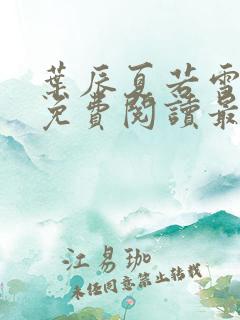 葉辰夏若雪
免費閱讀最
江易珈
未經同意禁止轉載